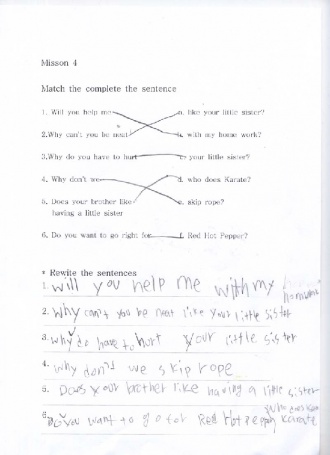 Misson 4
Match the complete the sentence
1. Will you help me a. like your little sister?
2.Why can't you be neat b. with my home work?
3.Why do you have to hurt c. your little sister?
4. Why don't we d. who does Karate?
5. Does your brother like e. skip rope?
having a little sister
6. Do you want to go right for f. Red Hot Pepper?
* Rewite the sentences
1. will you help me with my homework
2. why can't you be neat like your little sister
3. why do have to hurt your little sister
4. why don't we skip rope
5. Does your brother like having a little sister
who does Karate
6. Do you want to go for Red Hot Pepper